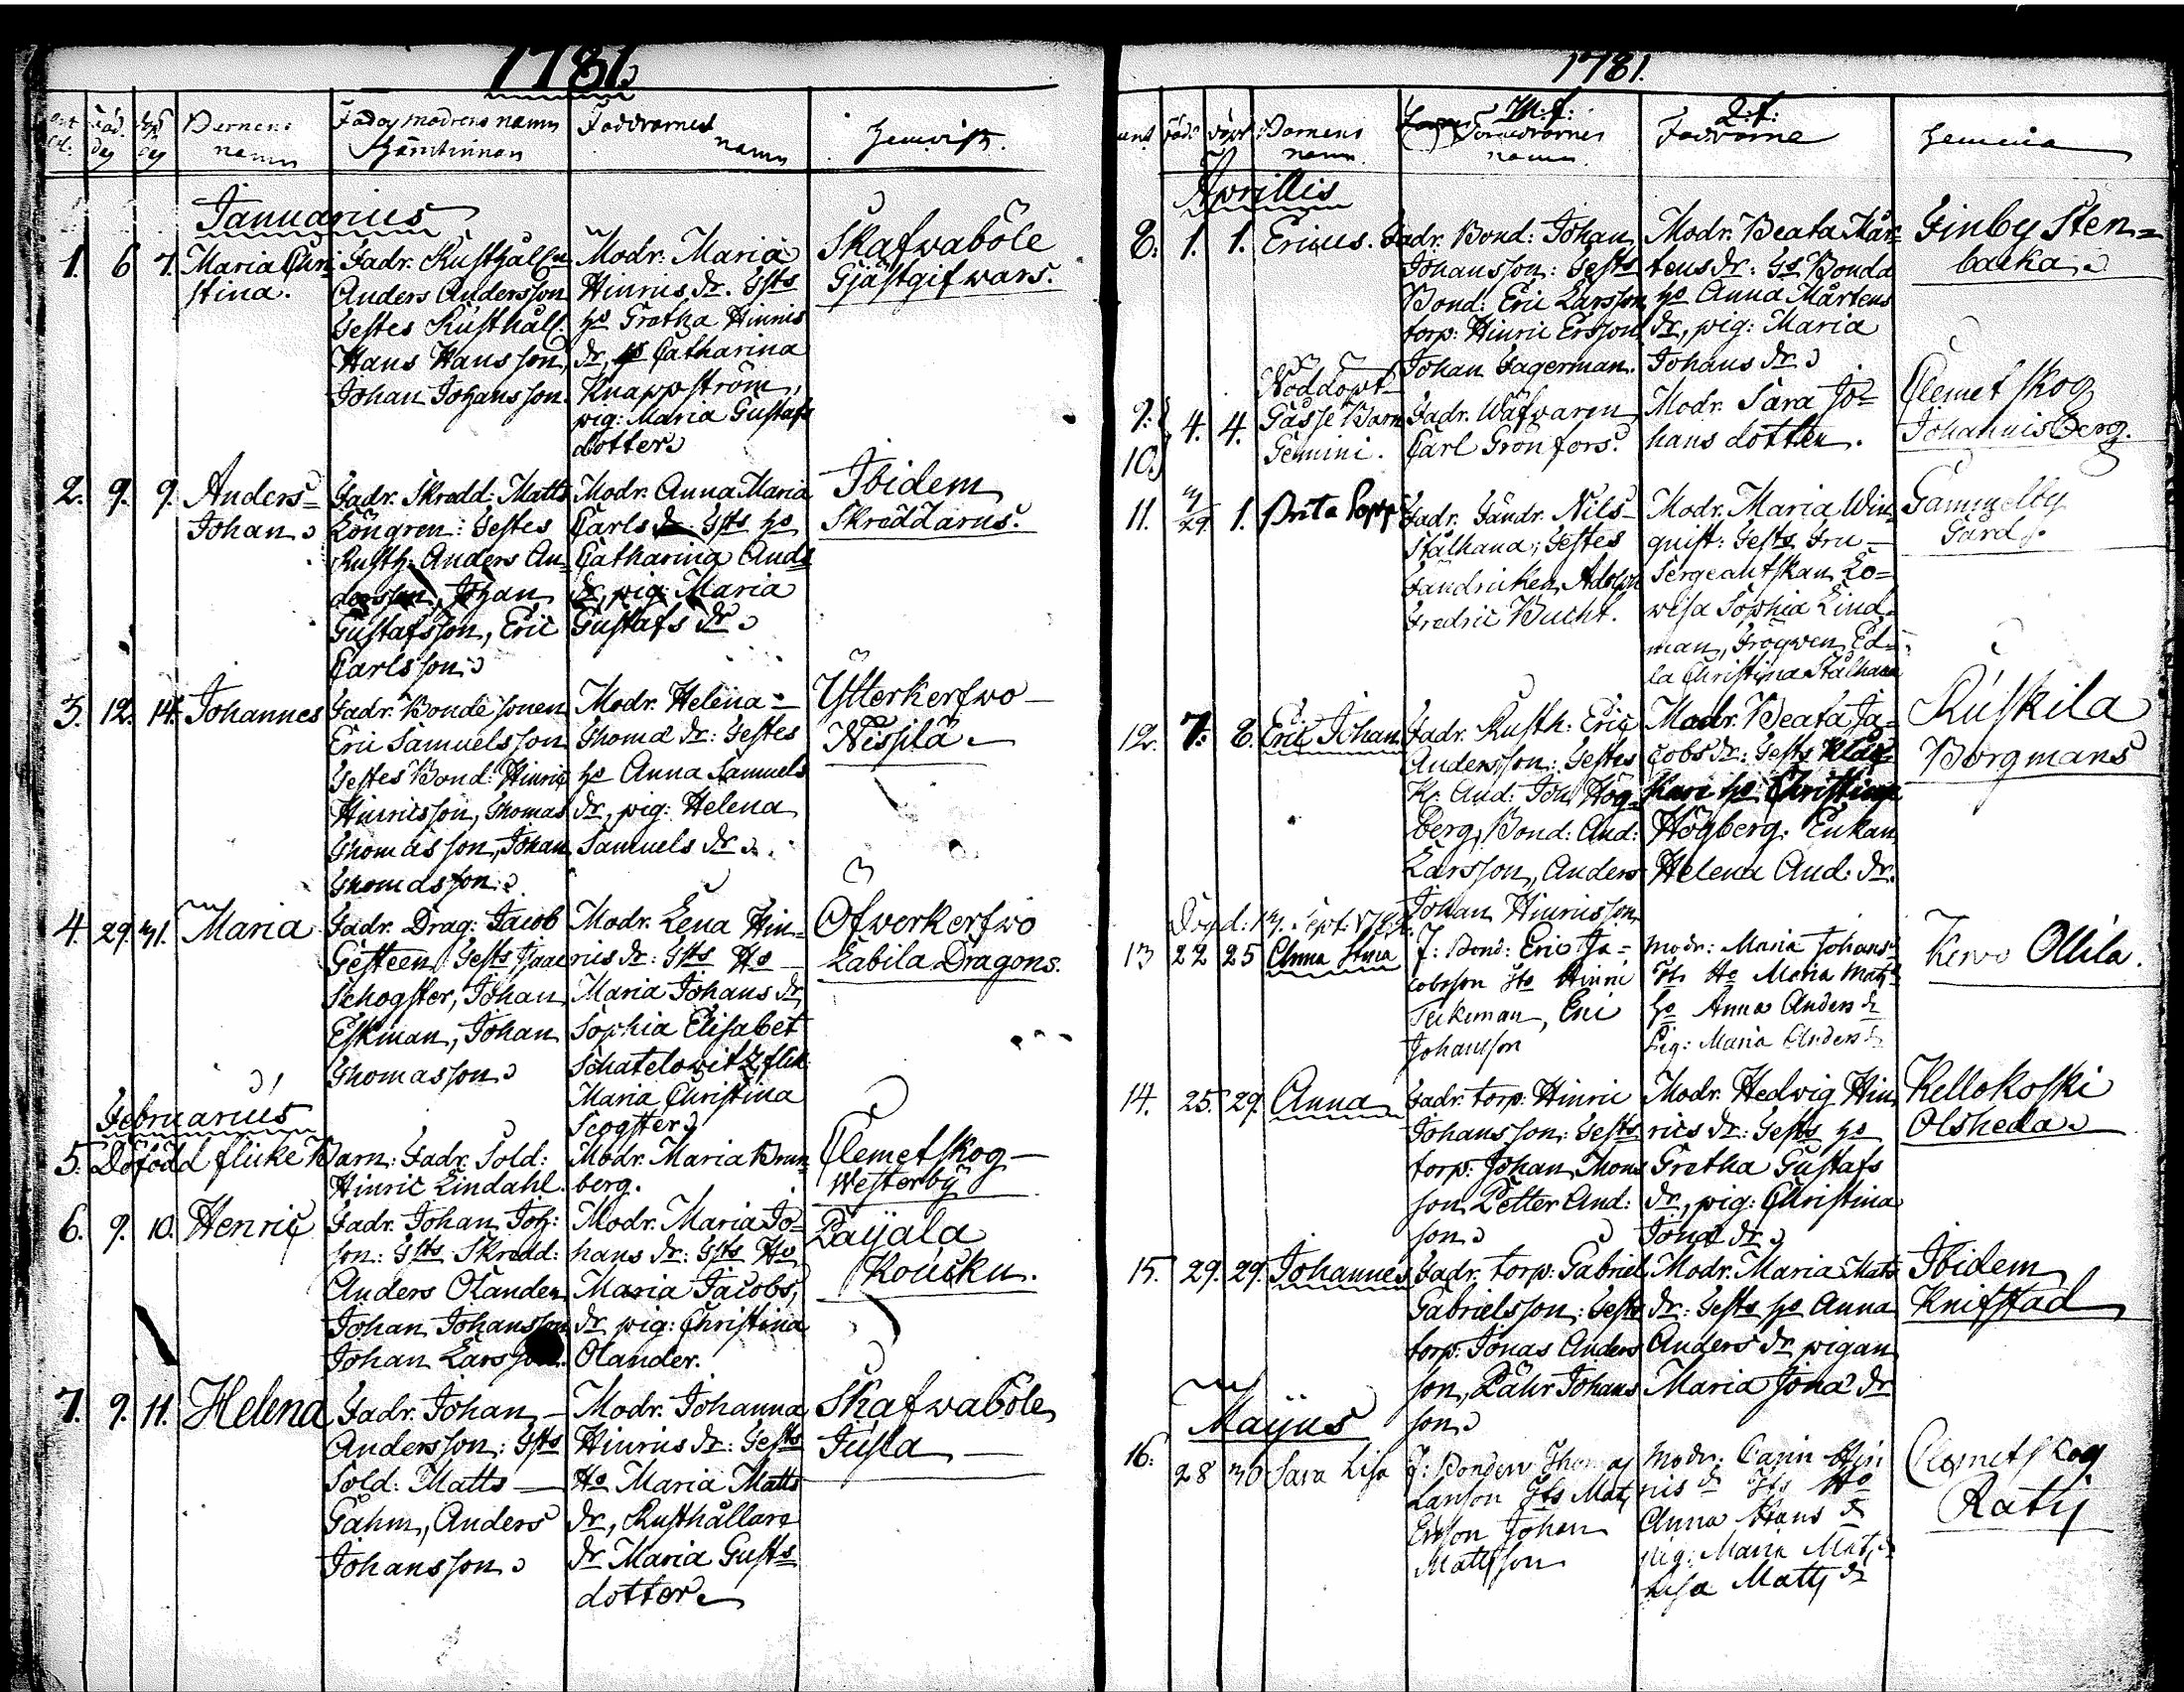 1781.
Barnens namn
Fad. och modrens namn hemkinnan
Faddrarnes namn
Hemvist.
Januarius
1. 6 7. Maria Chri
stina.
Fadr. Rusthåll:n
Anders Andersson
Testes Rusthåll:
Hans Hansson,
Johan Johansson.
Modr. Maria
Hinrics dr. Tsts
ho Gretha Hinrics
dr, ho Catharina
Knappström,
pig: Maria Gustafs
dotter
Skafwaböle
Gjästgifwars.
2. 9. 9. Anders=
Johan
Fadr. Skredd: Matts
Löngren: Testes
Rusth: Anders An=
dersson, Johan
Gustafsson, Eric
Carlsson
Modr. Anna Maria
Carls dr. Tsts ho
Catharina Ands
dr, pig: Maria
Gustafs dr
Ibidem
Skreddarns.
3. 12. 14. Johannes
Fadr. Bonde sonen
Eric Samuelsson
Testes Bond: Hinric
Hinricsson, Thomas
Thomasson, Johan
Thomasson
Modr. Helena
Thoma dr: Testes
ho Anna Samuels
dr, pig: Helena
Samuels dr
Ytterkerfwo
Nissila
4. 29. 31. Maria
Fadr. Drag: Jacob
Gesteen: Tests Isaac
Schogster, Johan
Eskman, Johan
Thomasson
Modr. Lena Hin=
rics dr: Tsts Ho
Maria Johans dr
Sophia Elisabet
Schatelowitz, flik:
Maria Christina
Scogster
Öfwerkerfwo
Labila Dragons.
Februarius
5. Dödfödd flicke Barn: Fadr. Sold:
Hinric Lindahl.
Modr. Maria Brun
berg.
Clemetskog
Westerby
6. 9. 10. Henric
Fadr. Johan Joh:
son: Tsts Skredd:
Anders Olander
Johan Johansson
Johan Larsson.
Modr. Maria Jo=
hans dr: Tsts Ho
Maria Jacobs
dr pig: Christina
Olander.
Paijala
Koucku.
7. 9. 11. Helena
Fadr. Johan
Andersson: Tsts
Sold: Matts
Gahm, Anders
Johansson
Modr. Johanna
Hinrics dr: Tests
Ho Maria Matts
dr, Rusthållare
dr Maria Gusts
dotter
Skafwaböle
Jusla
1781.
Barnens namn
M:f:
Faddrarnes namn
Q:f:
Faddrarne
Aprillis
8. 1. 1. Ericus.
Fadr. Bond: Johan
Johansson: Tests
Bond: Eric Larsson
torp: Hinric Ersson
Johan Fagerman.
Modr. Beata Mår=
tens dr: Ts Bonda
ho Anna Mårtens
dr, pig: Maria
Johans dr
Finby Sten=
backa
9. 10. 4. 4. Nöddöpt
Gåsse Barn
Gemini.
Fadr. Wäfwaren
Carl Grönfors.
Modr. Sara Jo=
hans dotter.
Clemetskog
Johannisberg.
11. 29 1. Brita
Fadr. Fändr. Nils
Stålhana; Testes
Fändricken Adolph
Fredric Bucht.
Modr. Maria Win
quist: Tests Fru
Sergeantskan Lo=
wisa Sophia Lind
man, Fröcken Ed=
la Christina Stålhana
Gammelby
Gård.
12. 7. 8. Eric Johan
Fadr. Rusth: Eric
Andersson: Testes
K: And: Joh Hög=
berg, Bond: And:
Larsson, Anders
Johan Hinricsson
Modr. Beata Ja=
cobs dr: Tests Klåc
kare ho Christina
Högberg. Enkan
Helena And: dr.
Ruskila
Borgmans
13 22 25 Anna Stina
F: Bond: Eric Ja=
cobsson Ts Hinric
Tickman, Eric
Johansson
modr: Maria Johans
Ts Ho Maria Mats
ho Anna Anders dr
Pig: Maria Anders dr
Kervo Ollila.
14. 25. 29. Anna
Fadr. torp: Hinric
Johansson: Tests
torp: Johan Thomas
son Petter And:
son
Modr. Hedwig Hin
rics dr: Tests ho
Gretha Gustafs
dr, pig: Christina
Jona dr
Kellokoski
Olsheda
15. 29. 29. Johannes
Fadr. torp: Gabriel
Gabrielsson: Tests
torp: Jonas Anders
son, Påhr Johans
son
Modr. Maria Mats
dr: Tests ho Anna
Anders dr pigan
Maria Jona dr
Ibidem
Knifstad
Maijus
16: 28 30 Sara Lisa
F: Bonden Thomas
Larsson Ts Mats
Ersson Johan
Matsson
modr: Carin Hin
rics dr Ts Ho
Anna Hans dr
pig: Maria Mats dr
Lisa Mats dr
Clemetskog
Räty